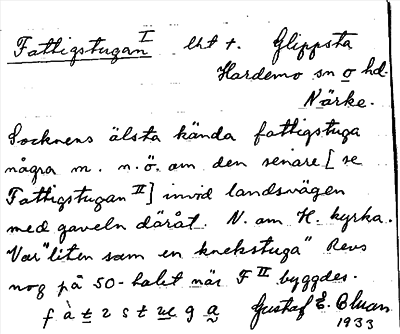 Fattigstugan I lht t. Glippsta
Hardemo sn o hd.
Närke.
Socknens älsta kända fattigstuga
några m. n.ö. om den senare [se
Fattigstugan II] invid landsvägen
med gaveln däråt. N. om H. kyrka.
Var "liten som en knekstuga" Revs
nog på 50-halet när F II byggdes.
Gustaf E. Bluan
1933